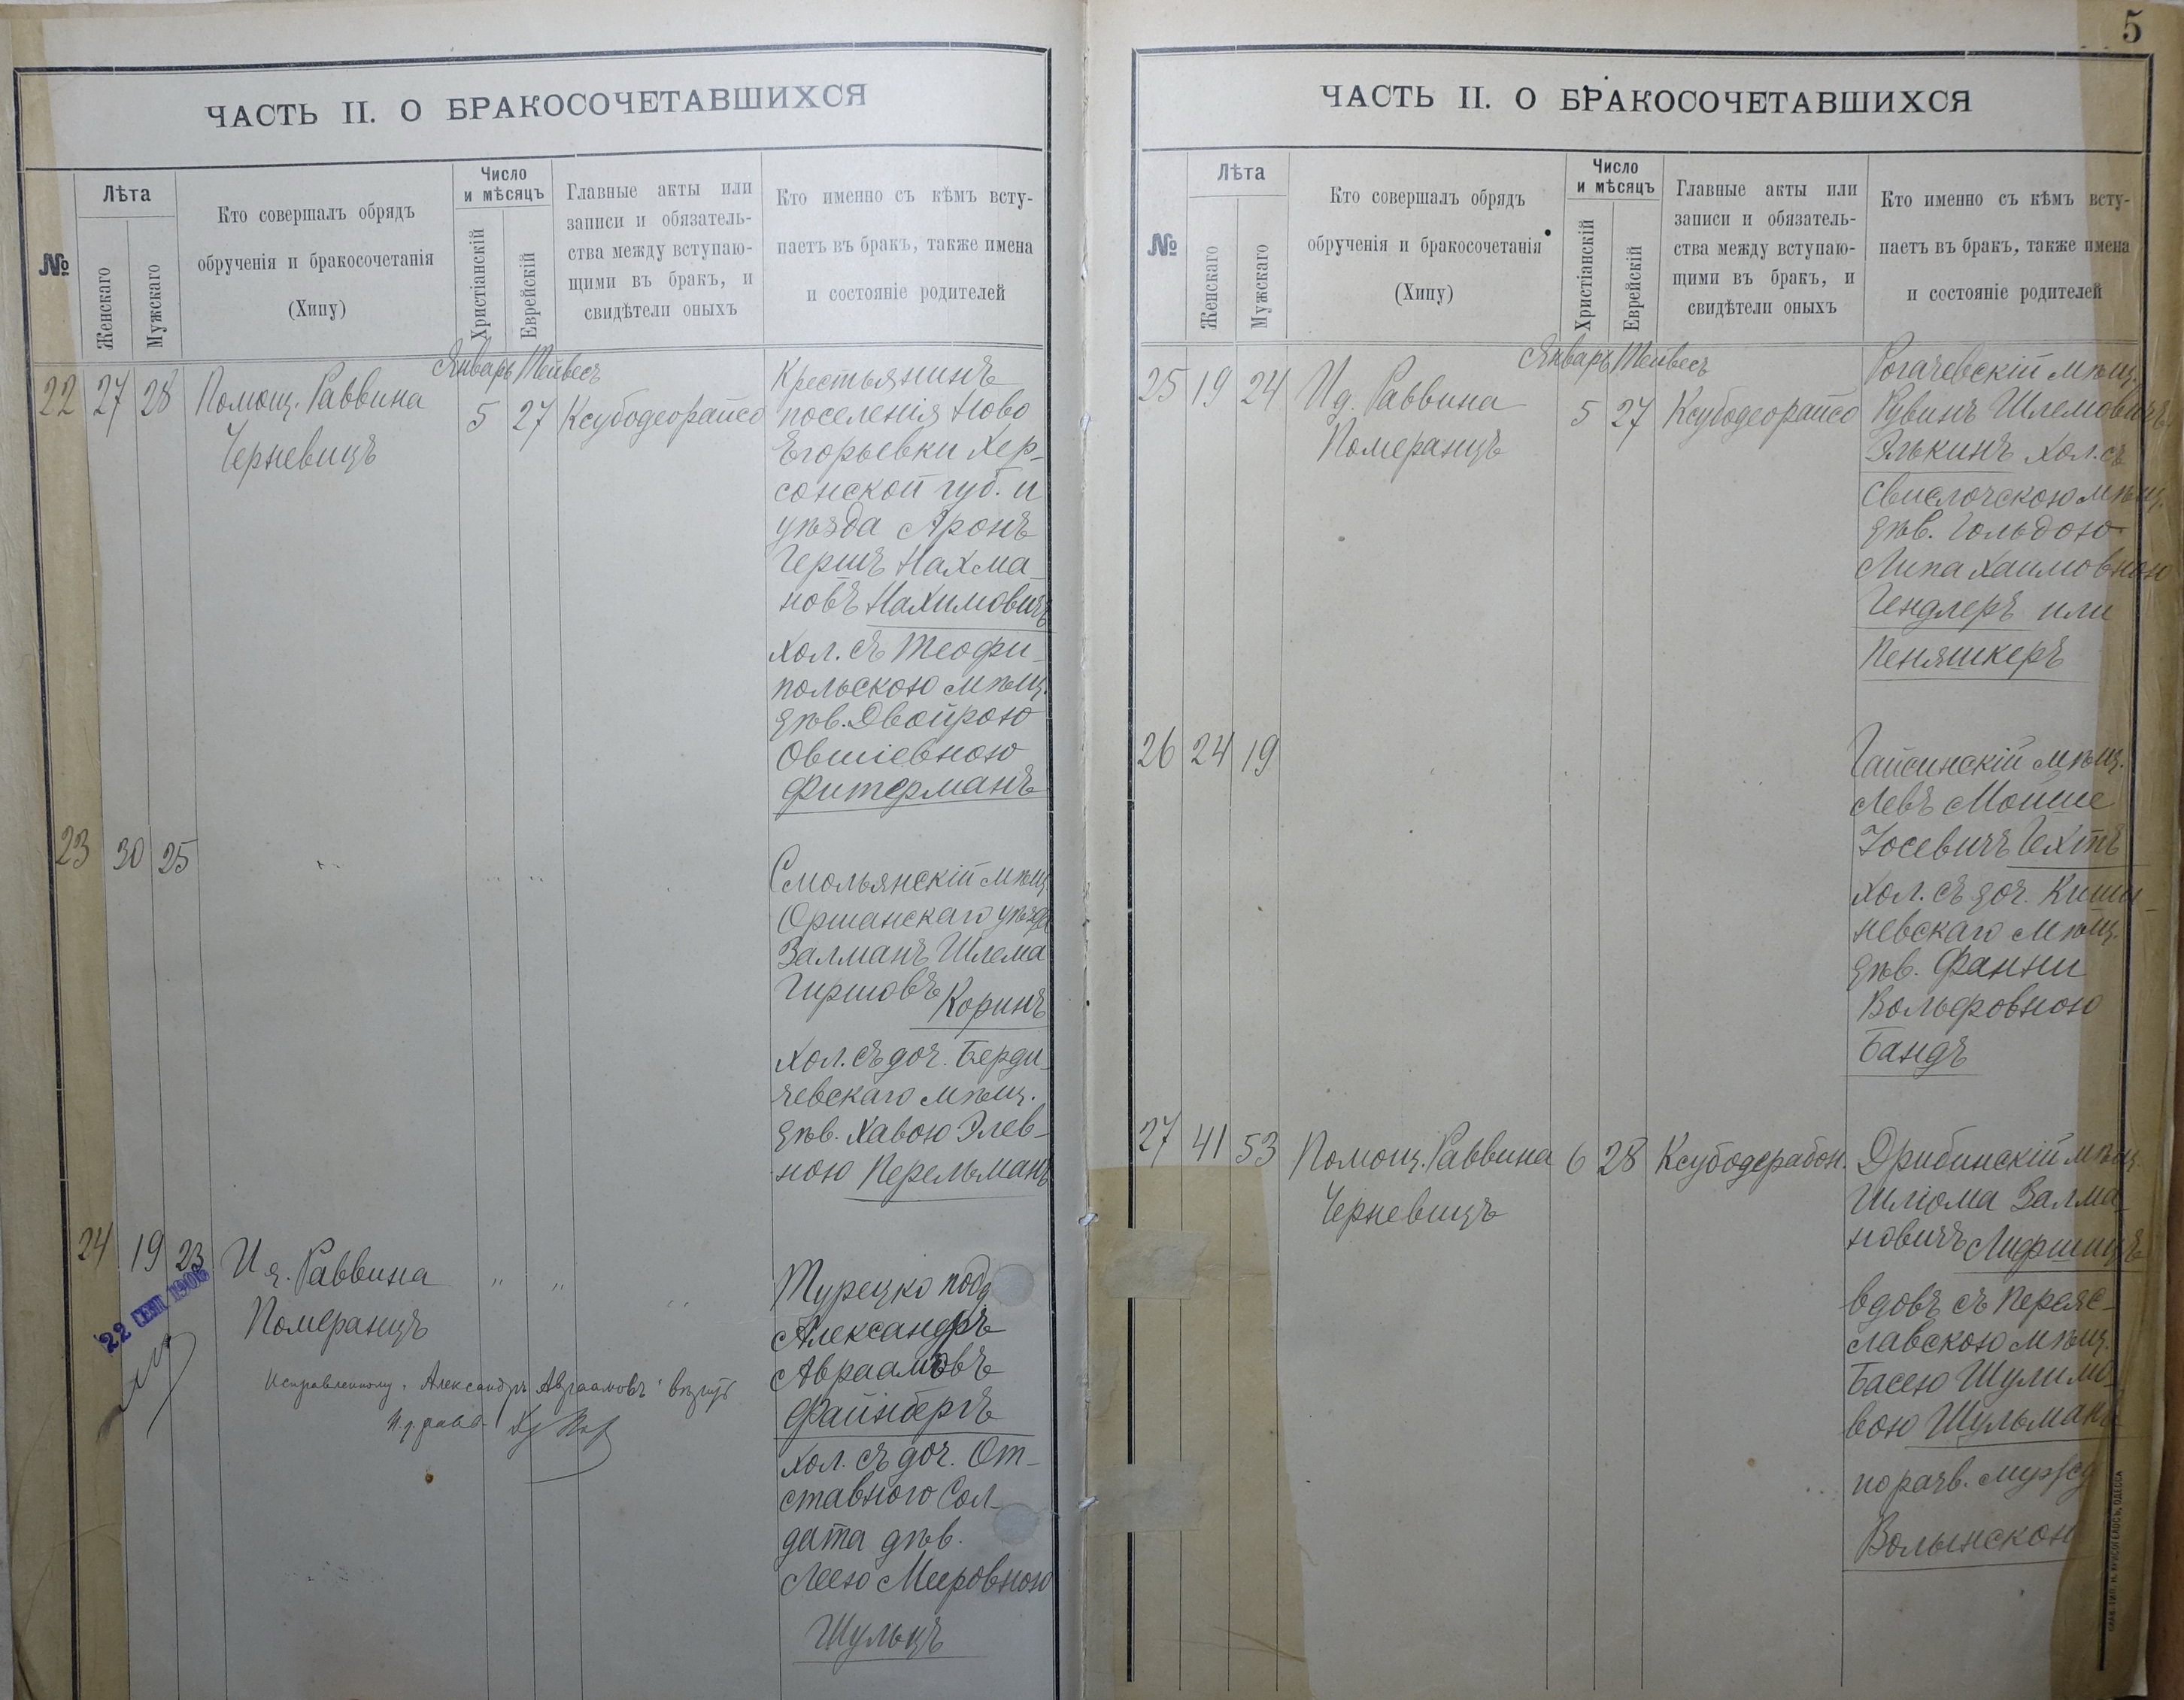 ЧАСТЬ II. О БРАКОСОЧЕТАВШИХСЯ
№
Лѣта
Женскаго
Мужскаго
Кто совершалъ обрядъ
обрученія и бракосочетанія
(Хипу)
Число
и мѣсяцъ
Христіанскій
Еврейскій
Главные акты или
записи и обязатель-
ства между вступаю-
щими въ бракъ, и
свидѣтели оныхъ
Кто именно съ кѣмъ всту-
паетъ въ бракъ, также имена
и состояніе родителей
Январь Тейвесъ
22 27 28 Помощ. Раввина
Черневицъ
5 27 Ксубодеорайсо
Крестьянинъ
поселенія Ново
Егорьевки Хер-
сонской губ. и
уѣзда Аронъ
Гершъ Нахма-
новъ Нахимовичъ
хол. съ Теофи-
польскою мѣщ.
дѣв. Двойрою
Овшіевною
Фитерманъ
23 30 25 " " "
Смольянскій мѣщ.
Оршанскаго уѣзда
Залманъ Шлема
Гиршовъ Коринъ
хол. съ доч. Берди-
чевскаго мѣщ.
дѣв. Хавою Элев-
ною Перельманъ
24 19 23 И д. Раввина
Померанцъ
" " "
22 СЕН 1906
Турецко подд
Александръ
Авраамовъ
Файнбергъ
хол. съ доч. От-
ставного Сол-
дата дѣв.
Леею Мееровною
Шульцъ
Исправленному "Александръ Авраамовъ" вѣрить
И д. равв.
5
ЧАСТЬ II. О БРАКОСОЧЕТАВШИХСЯ
№
Лѣта
Женскаго
Мужскаго
Кто совершалъ обрядъ
обрученія и бракосочетанія
(Хипу)
Число
и мѣсяцъ
Христіанскій
Еврейскій
Главные акты или
записи и обязатель-
ства между вступаю-
щими въ бракъ, и
свидѣтели оныхъ
Кто именно съ кѣмъ всту-
паетъ въ бракъ, также имена
и состояніе родителей
Январь Тейвесъ
25 19 24 И д. Раввина
Померанцъ
5 27 Ксубодеорайсо
Рогачевскій мѣщ.
Рувинъ Шлемовичъ
Элькинъ хол. съ
Свислочскою мѣщ.
дѣв. Гольдою
Липа Хаимовною
Гендлеръ или
Пеняшкеръ
26 24 19
Гайсинскій мѣщ.
Левъ Мошше
Іосевичъ Гехтъ
хол. съ доч. Киши-
невскаго мѣщ.
дѣв. Фанни
Вольфовною
Бандъ
27 41 53 Помощ. Раввина
Черневицъ
6 28 Ксубодерабон.
Дрибинскій мѣщ.
Шліома Залма-
новичъ Лифшицъ
вдовъ съ Переяс-
лавскою мѣщ.
Басею Шулимо-
вою Шульманъ
по разв. мужу
Волынской